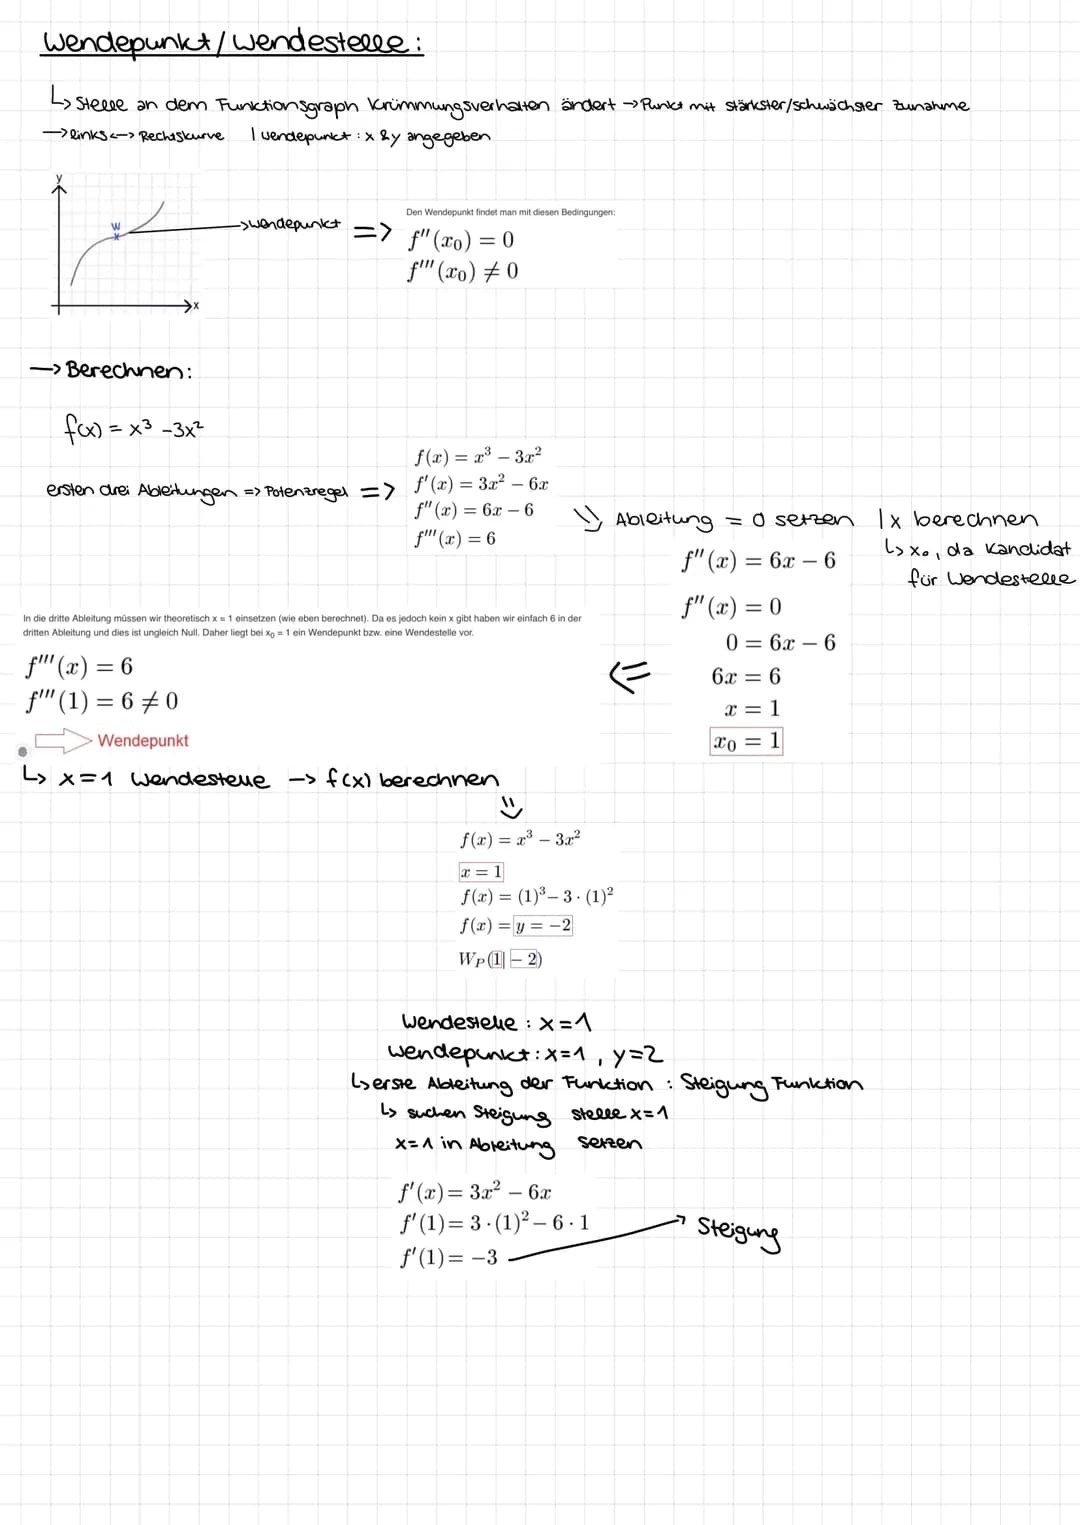 Wendepunkt/Wendestelle:
↳ Stelle an dem Funktionsgraph Krümmungsverhalten ändert → Punkt mit stärkster/schwächster Zunahme
→ links <-> Rechtskurve | Wendepunkt : x & y angegeben
y
W
x
→ Wendepunkt =>
Den Wendepunkt findet man mit diesen Bedingungen:
f''(x₀) = 0
f'''(x₀) ≠ 0
→ Berechnen:
f(x) = x³ -3x²
ersten drei Ableitungen => Potenzregel =>
f(x) = x³ − 3x²
f'(x) = 3x² − 6x
f''(x) = 6x − 6
f'''(x) = 6
Ableitung = 0 setzen | x berechnen
↳ x₀, da Kandidat
für Wendestelle
f''(x) = 6x − 6
f''(x) = 0
0 = 6x − 6
6x = 6
x = 1
x₀ = 1
In die dritte Ableitung müssen wir theoretisch x = 1 einsetzen (wie eben berechnet). Da es jedoch kein x gibt haben wir einfach 6 in der
dritten Ableitung und dies ist ungleich Null. Daher liegt bei x₀ = 1 ein Wendepunkt bzw. eine Wendestelle vor.
f'''(x) = 6
f'''(1) = 6 ≠ 0
Wendepunkt
↳ x=1 Wendestelle → f(x) berechnen
f(x) = x³ − 3x²
x = 1
f(x) = (1)³ − 3 · (1)²
f(x) = y = −2
W_P(1| − 2)
Wendestelle : x=1
Wendepunkt: x=1 , y=2
↳ erste Ableitung der Funktion : Steigung Funktion
↳ suchen Steigung stelle x=1
x=1 in Ableitung setzen
f'(x) = 3x² − 6x
f'(1) = 3 · (1)² − 6 · 1
f'(1) = −3
Steigung